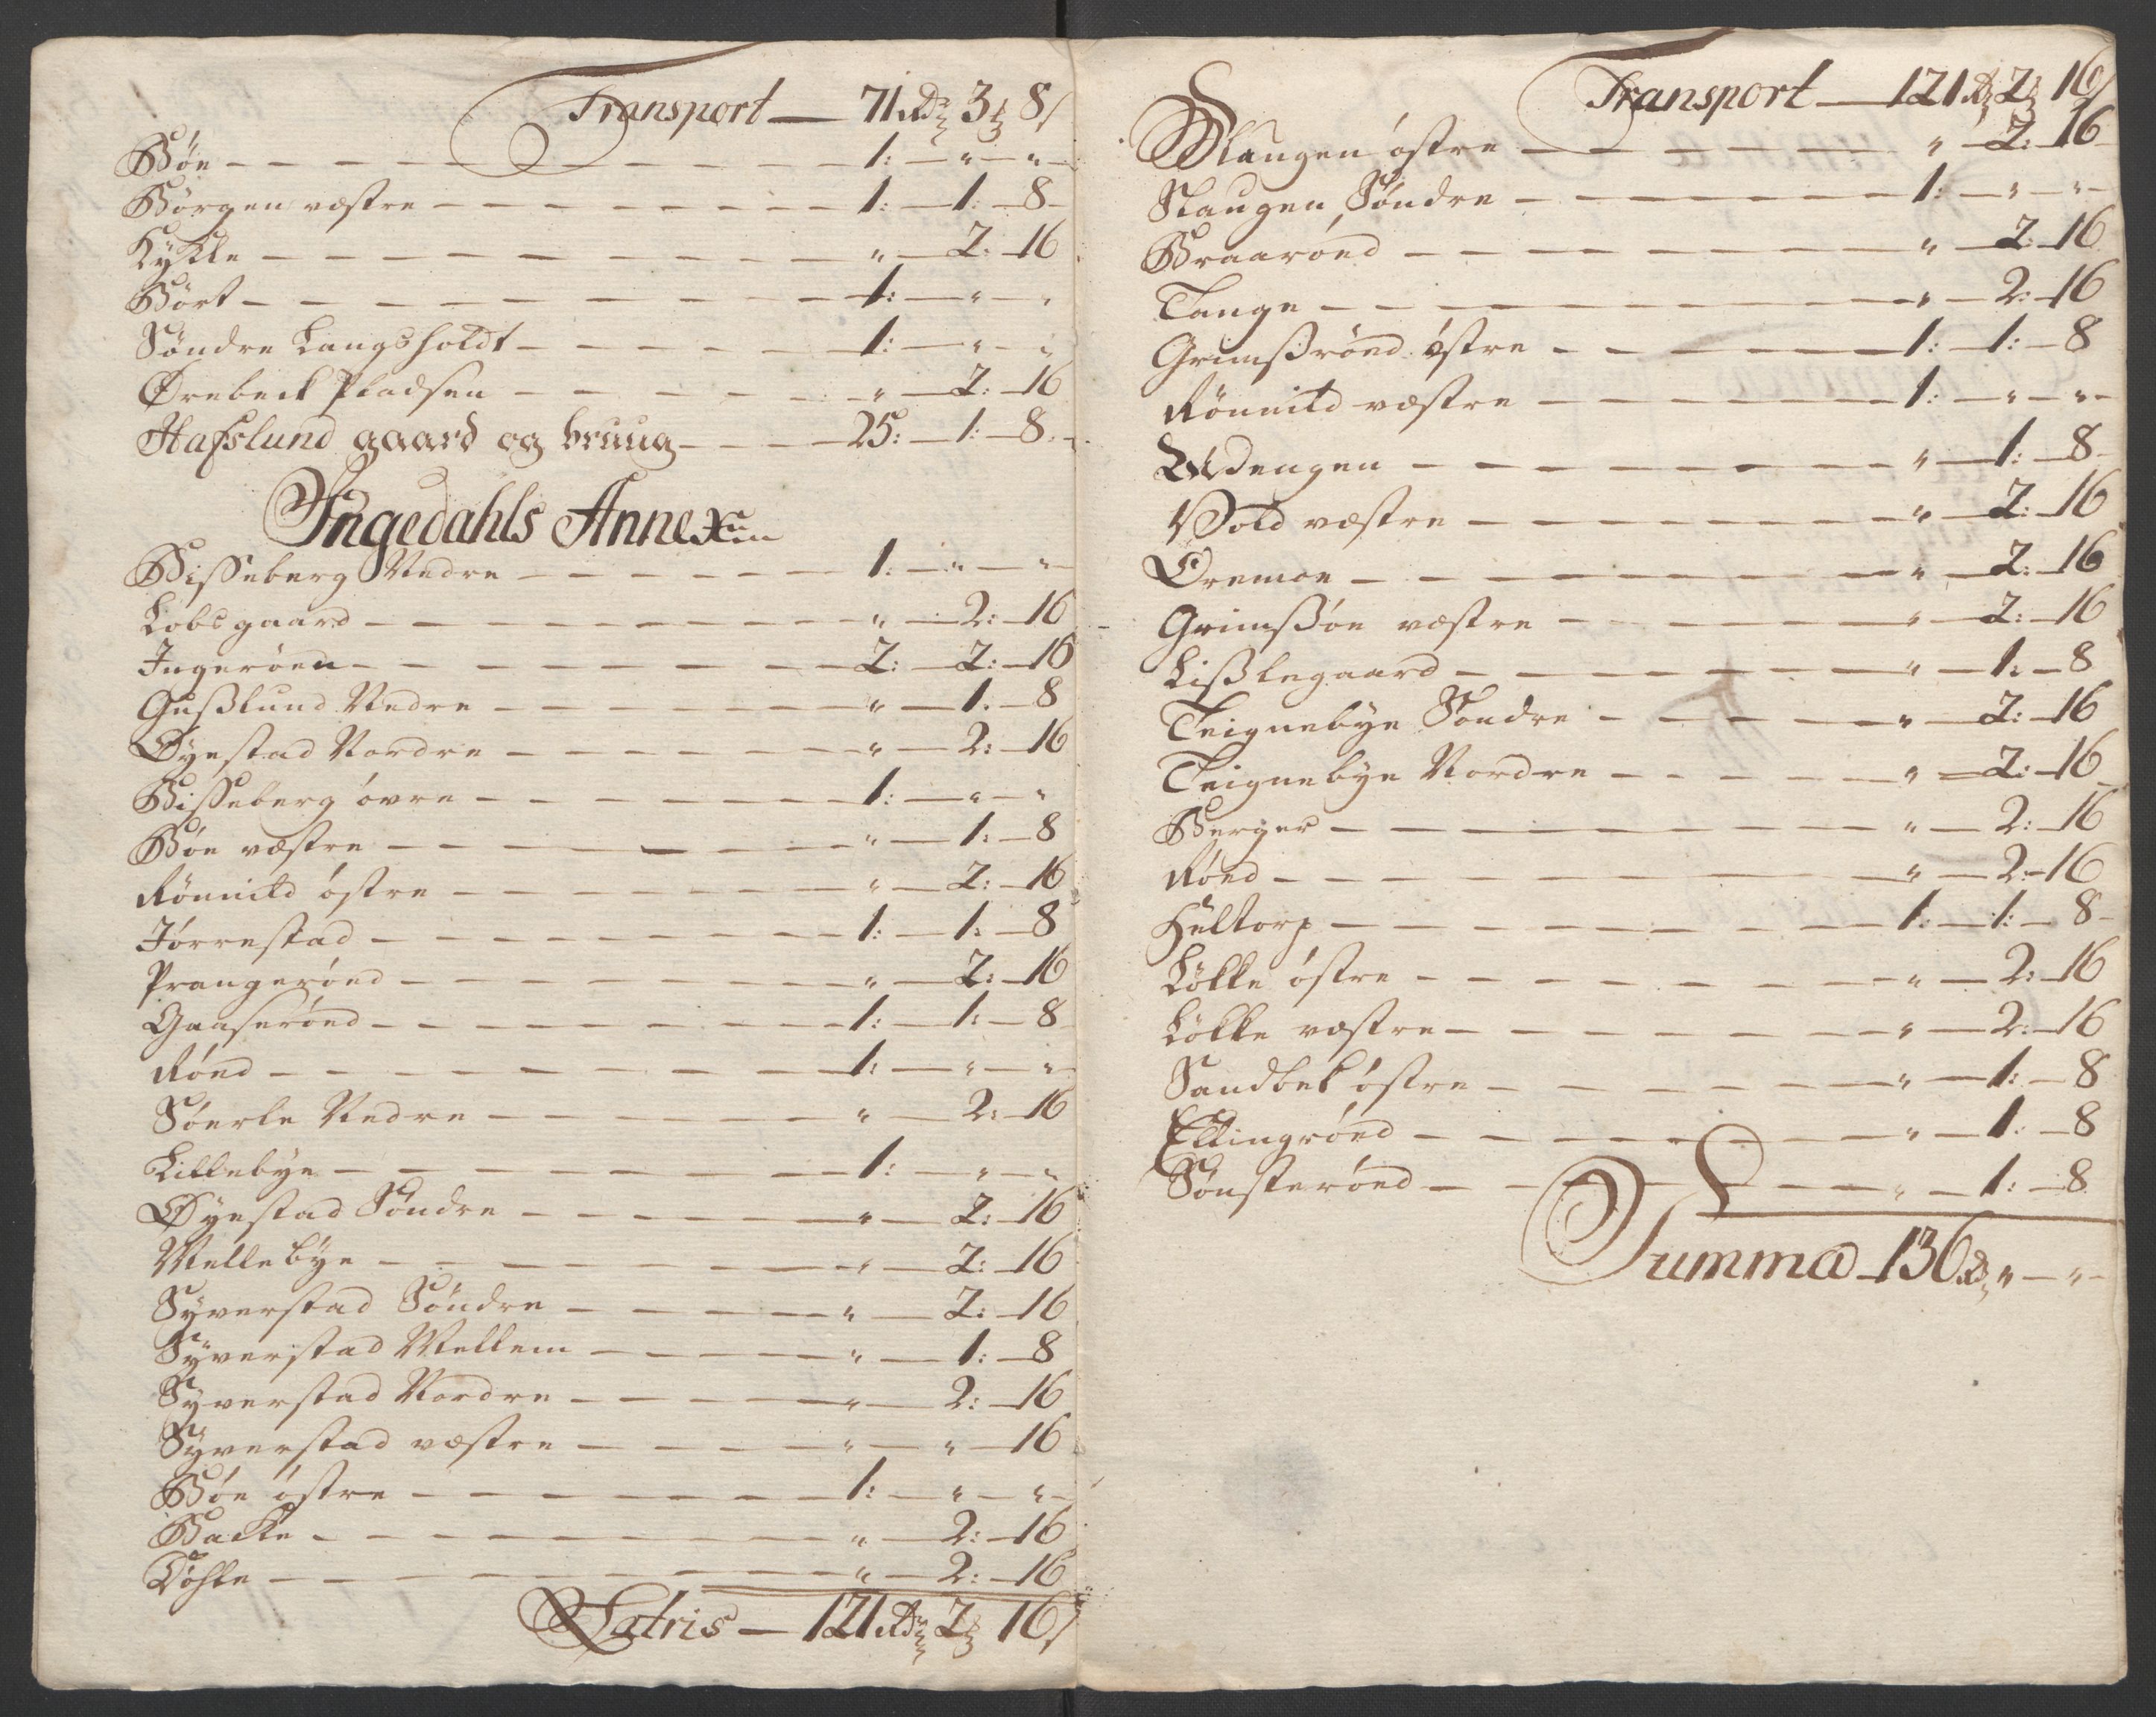 Transport — 71 Rd 3 ꝣ 8 s
Bøe — 1: — " — "
Børgen væstre — 1: — 1: — 8
Kykle — " — 2: — 16
Bört — 1: — " — "
Söndre Langsholdt — 1: — " — "
Ørebeck Pladsen — " — 2: — 16
Hafslund gaard og bruug — 25: — 1: — 8
Ingedahls Annexm
Bisseberg Nedre — 1: — " — "
Lobsgaard — " — 2: — 16
Ingeröen — 2: — 2: — 16
Gusslund Nedre — " — 1: — 8
Øyestad Nordre — " — 2: — 16
Bisseberg øvre — 1: — " — "
Bøe væstre — " — 1: — 8
Rönnild østre — " — 2: — 16
Jörrestad — 1: — 1: — 8
Prangeröed — " — 2: — 16
Gaaseröed — 1: — 1: — 8
Röed — 1: — " — "
Söerle Nedre — " — 2: — 16
Lillebye — 1: — " — "
Øyestad Söndre — " — 2: — 16
Mellebÿe — " — 2: — 16
Syverstad Söndre — " — 2: — 16
Syverstad Mellem — " — 1: — 8
Syverstad Nordre — " — 2: — 16
Syverstad væstre — " — " — 16
Bøe østre — 1: — " — "
Backe — " — 2: — 16
Döhle — " — 2: — 16
Latris — 121 Rd 2 ꝣ 16 s
Transport — 121 Rd 2 ꝣ 16 s
Slaugen østre — " — 2: — 16
Slaugen Söndre — 1: — " — "
Braaröed — " — 2: — 16
Tange — " — 2: — 16
Grimsröed østre — 1: — 1: — 8
Rönnild væstre — 1: — " — "
Udengen — " — 1: — 8
Vold væstre — " — 2: — 16
Oremoe — " — 2: — 16
Grimsöe væstre — " — 2: — 16
Lisslegaard — " — 1: — 8
Teignebye Söndre — " — 2: — 16
Teignebye Nordre — " — 2: — 16
Berger — " — 2: — 16
Röed — " — 2: — 16
Hultorp — 1: — 1: — 8
Lökke østre — " — 2: — 16
Lökke væstre — " — 2: — 16
Sandbek østre — " — 1: — 8
Ellingröed — " — 1: — 8
Sönsteröed — " — 1: — 8
Summa — 136 Rd " — "